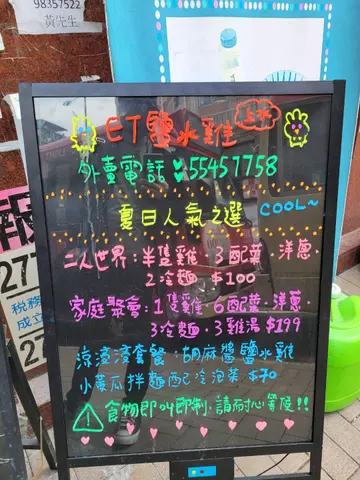 98357522
黃先生
ET鹽水雞 上水
外賣電話 55457758
夏日人氣之選 COOL~
二人世界:半隻雞.3配菜.洋蔥.
2冷麵 $100
家庭聚會:1隻雞.6配菜.洋蔥.
3冷麵.3雞湯 $199
涼渣渣套餐:胡麻醬鹽水雞
小黃瓜拌麵配冷泡菜 $70
! 食物即叫即制,請耐心等候!!
277
稅務
成立
27